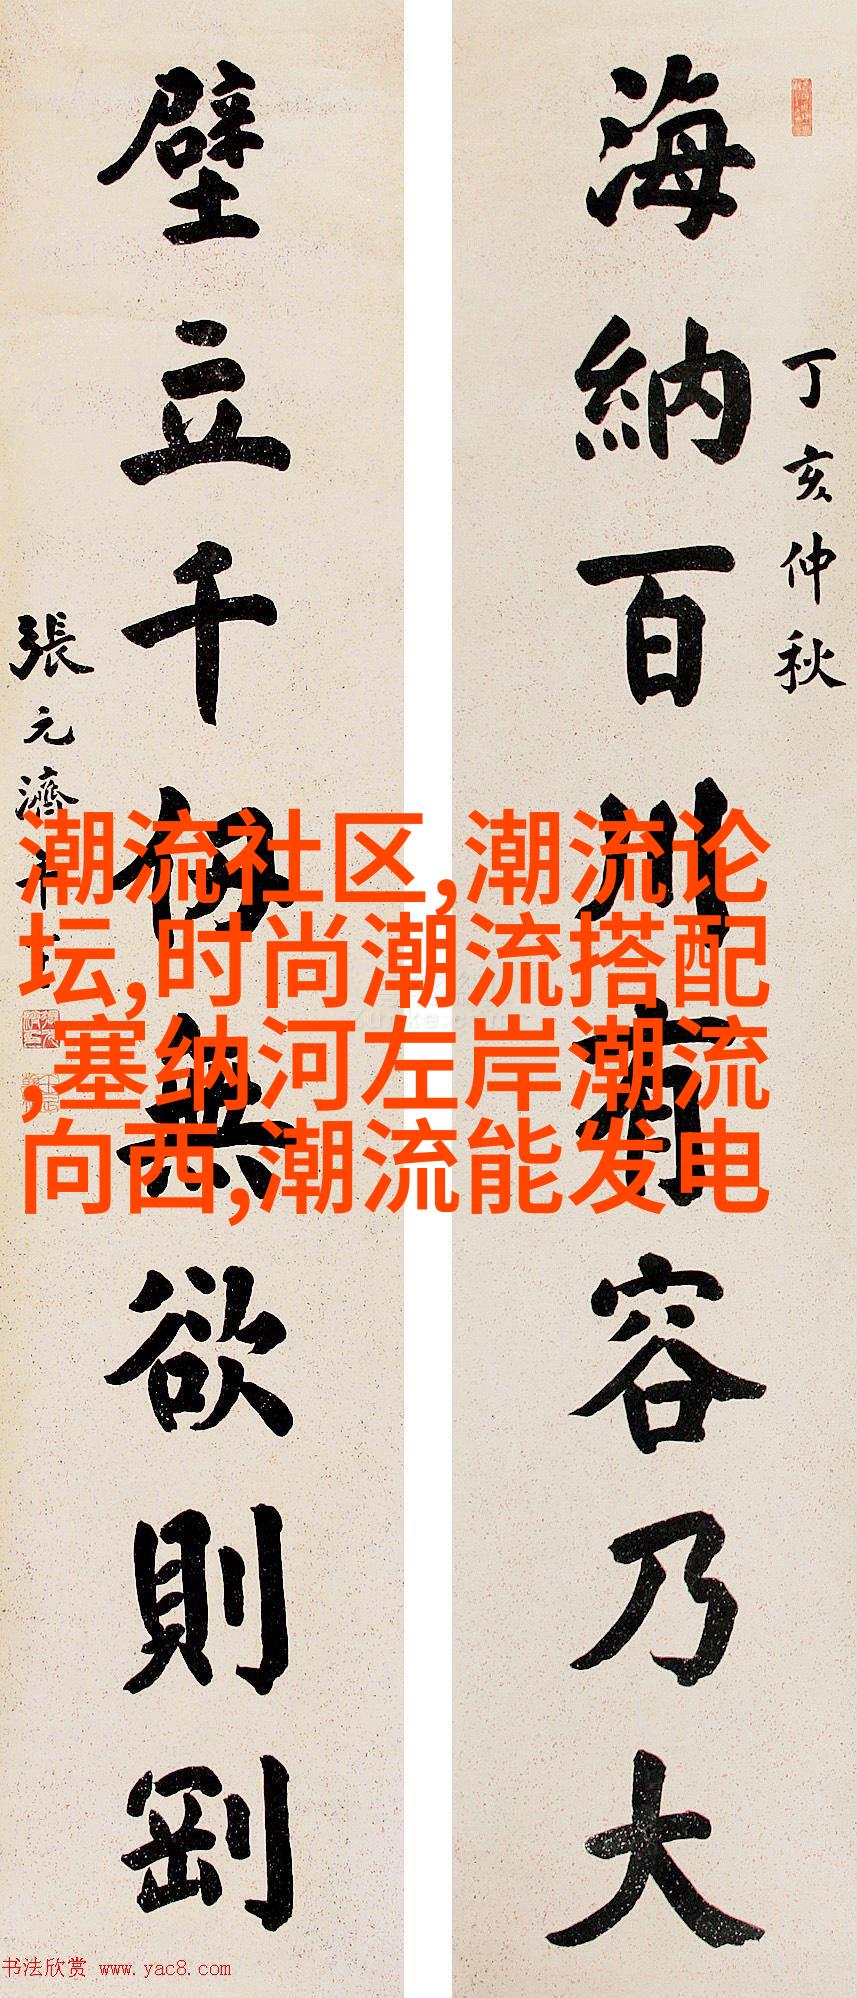 海納百川有容乃大
丁亥仲秋
壁立千仞無欲則剛
張元濟
潮流社区,潮流论
坛,时尚潮流搭配
,塞纳河左岸潮流
向西,潮流能发电
书法欣赏 www.yac8.com